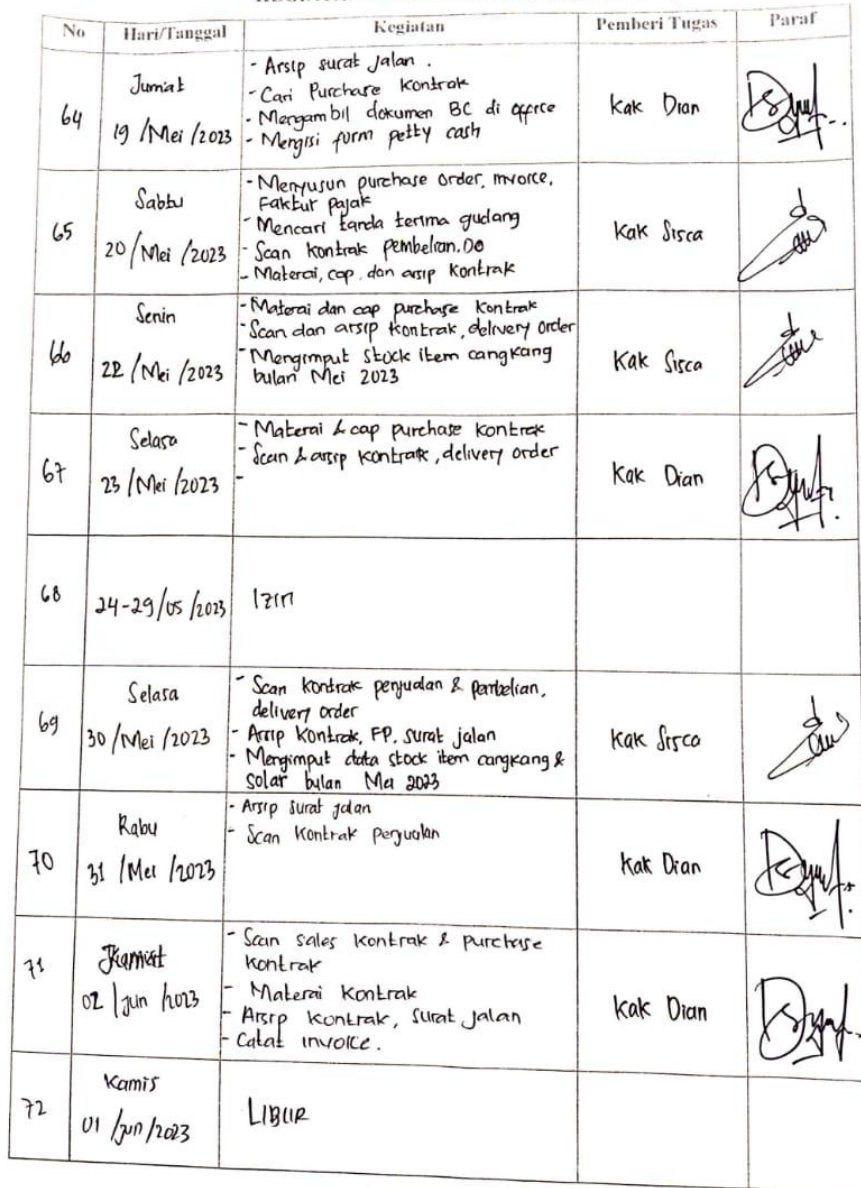 No Hari/Tanggal Kegiatan Pemberi Tugas Paraf
64
Jumat
19 /Mei /2023
- Arsip surat jalan.
- Cari Purchase Kontrak
- Mengambil dokumen BC di office
- Mengisi form petty cash
Kak Dian
65
Sabtu
20/Mei /2023
- Menyusun purchase order, invoice,
Faktur pajak
- Mencari tanda terima gudang
- Scan Kontrak pembelian. DO
- Materai, cap. dan arsip Kontrak
Kak Sisca
66
Senin
22 /Mei /2023
- Materai dan cap purchase Kontrak
- Scan dan arsip Kontrak, delivery order
- Mengimput Stock item cangkang
bulan Mei 2023
Kak Sisca
67
Selasa
23 /Mei /2023
- Materai & cap purchase Kontrak
- Scan & arsip Kontrak, delivery order
-
Kak Dian
68
24-29/05/2023
Izin
69
Selasa
30/Mei /2023
- Scan Kontrak penjualan & pembelian,
delivery order
- Arsip Kontrak, FP, surat jalan
- Mengimput data stock item cangkang &
solar bulan Mei 2023
Kak Sisca
70
Rabu
31 /Mei /2023
- Arsip surat jalan
- Scan Kontrak penjualan
Kak Dian
71
02 /Jun /2023
- Scan sales Kontrak & purchase
Kontrak
- Materai Kontrak
- Arsip Kontrak, Surat Jalan
- Catat invoice.
Kak Dian
72
Kamis
01 /Jun /2023
LIBUR